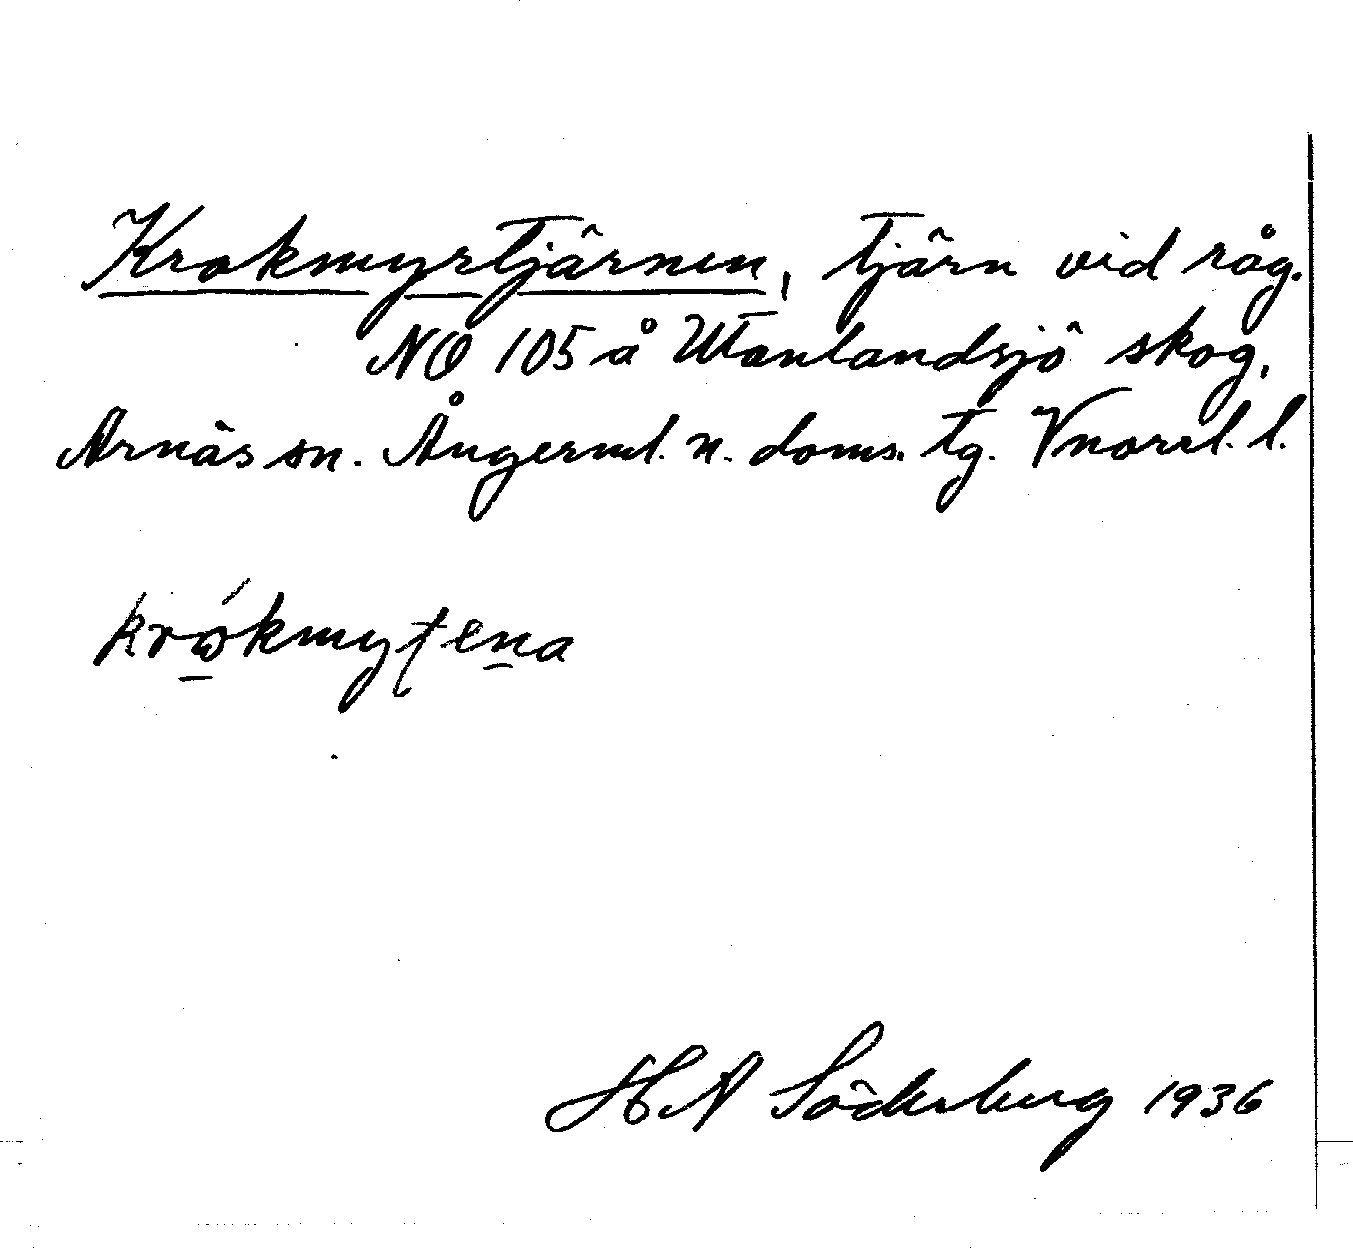 Krokmyrtjärnen, tjärn vid råg.
NO 105 å Utanlandsjö skog,
Arnäs sn. Ångerml. n. doms. tg. Vnorrl. l.
H A Söderberg 1936